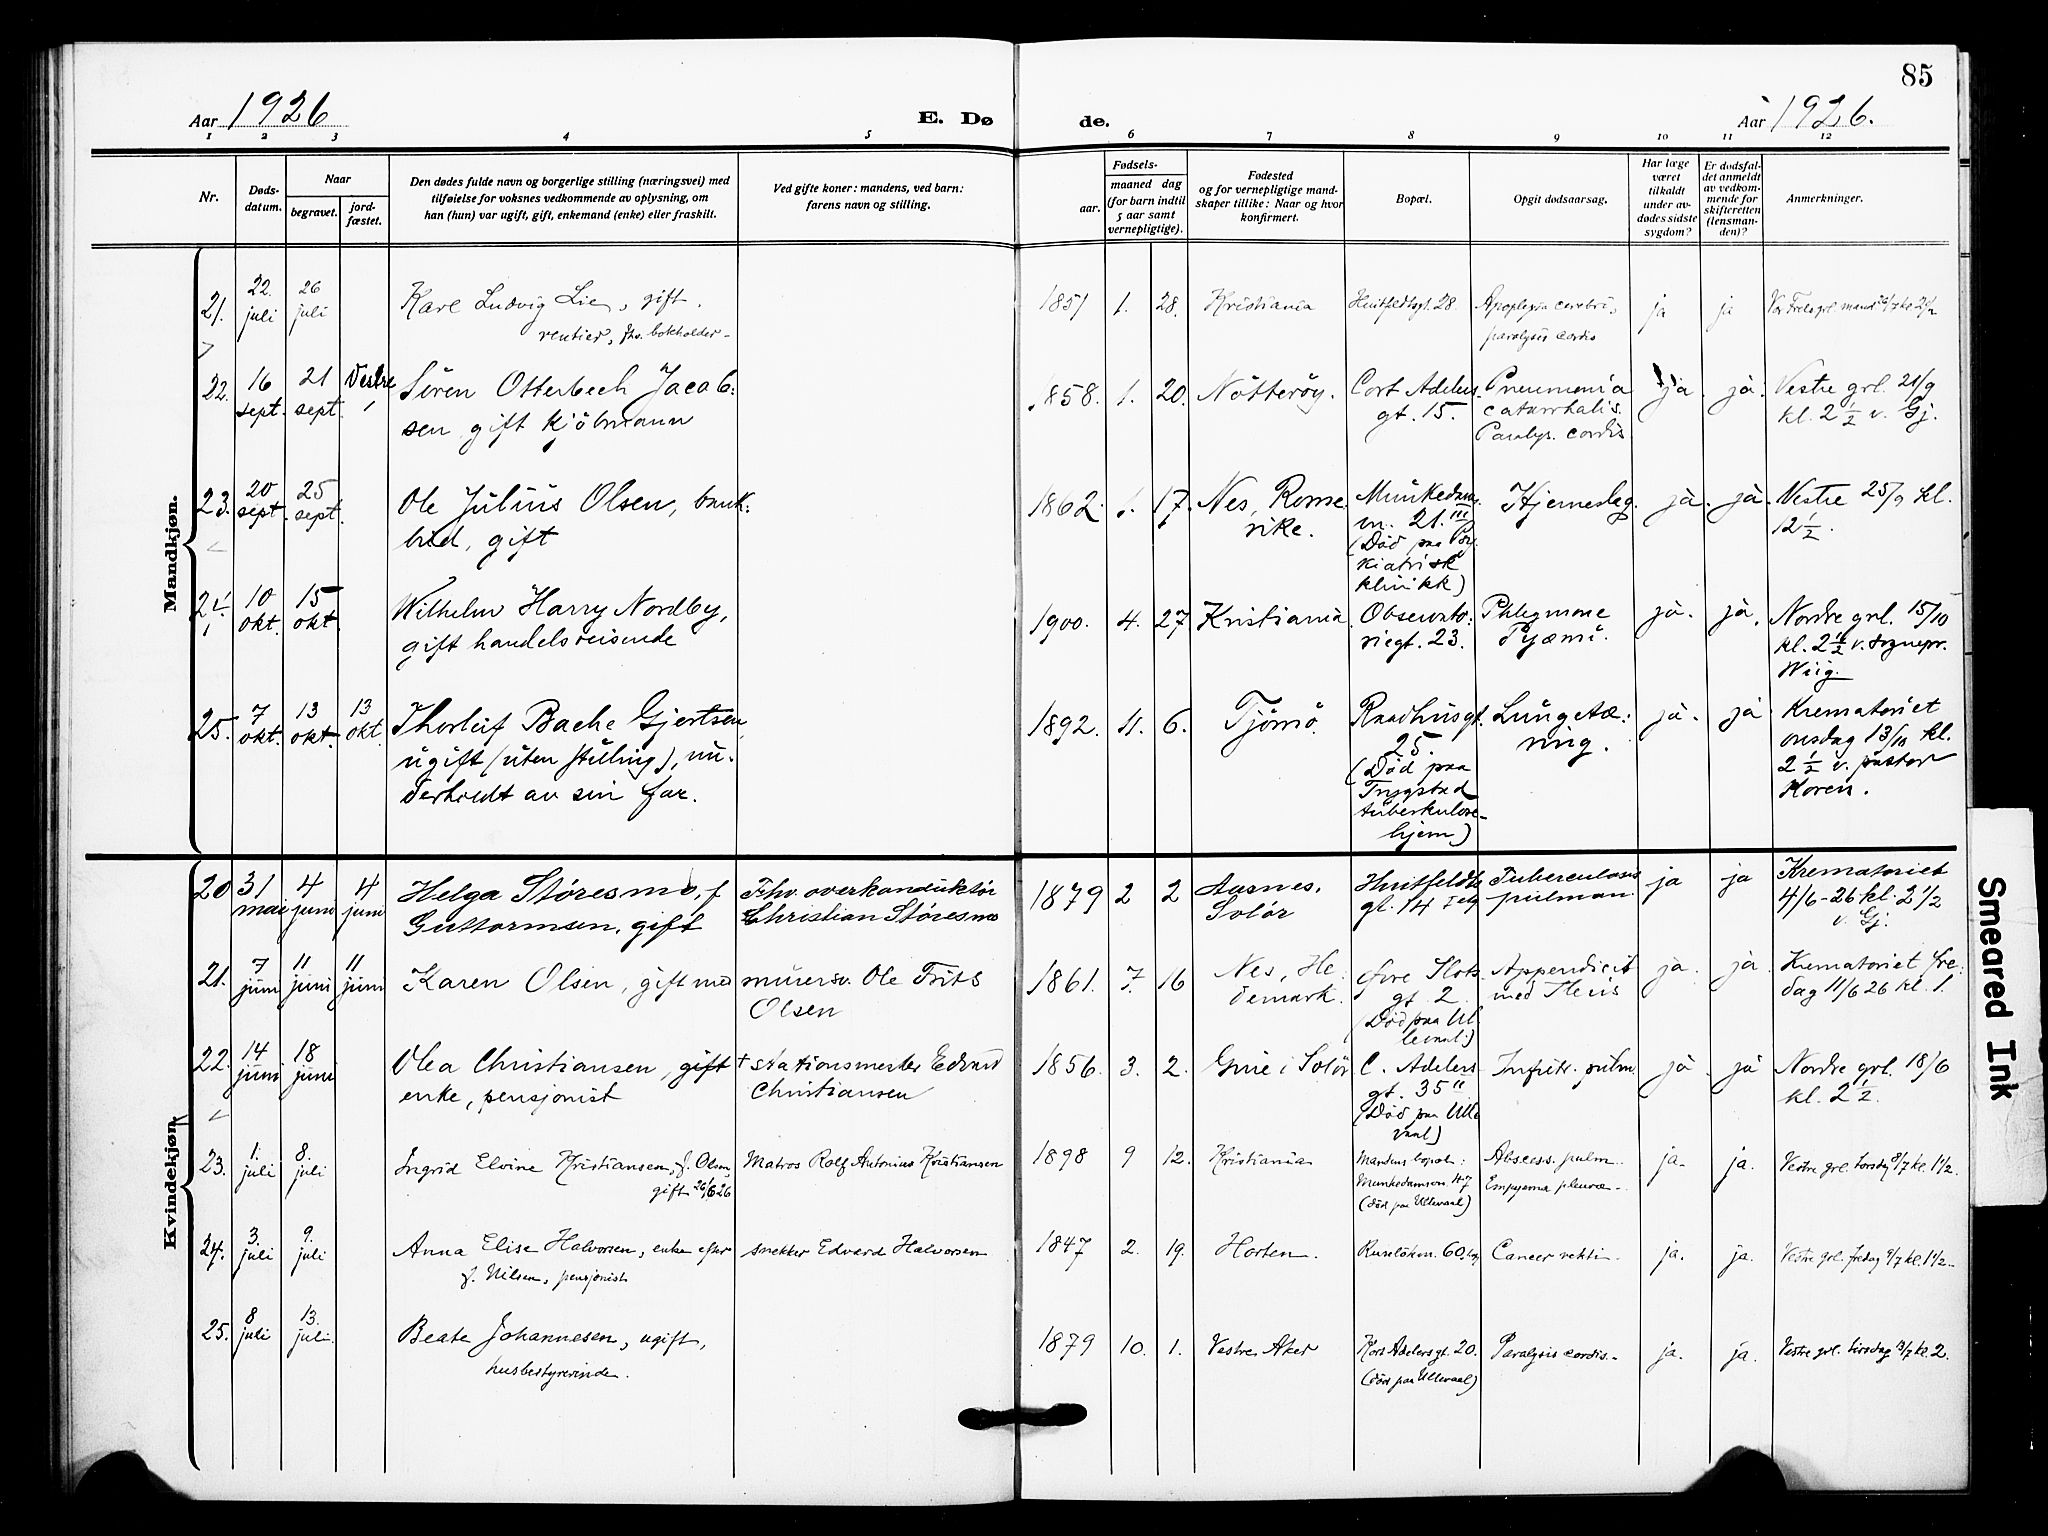 85
Aar 1926
E. Dø
de.
Aar 1926.
1 2 3 4 5 6 7 8 9 10 11 12
Nr.
Døds-
datum.
Naar
begravet.
jord-
fæstet.
Den dødes fulde navn og borgerlige stilling (næringsvei) med
tilføielse for voksnes vedkommende av oplysning, om
han (hun) var ugift, gift, enkemand (enke) eller fraskilt.
Ved gifte koner: mandens, ved barn:
farens navn og stilling.
Fødsels-
aar.
maaned dag
(for barn indtil
5 aar samt
vernepligtige).
Fødested
og for vernepligtige mand-
skaper tillike: Naar og hvor
konfirmert.
Bopæl.
Opgit dødsaarsag.
Har læge
været
tilkaldt
under av-
dødes sidste
sygdom?
Er dødsfal-
det anmeldt
av vedkom-
mende for
skifteretten
(lensman-
den)?
Anmerkninger.
Mandkjøn.
21. 22. juli 26 juli Karl Ludvig Lie, gift.
rentier, fhv. bokholder-
1851 1. 28. Kristiania Huitfeldtsgt. 28. Apoplegia cerebri,
paralysis cordis
ja ja Vor Frels grl. mand. 26/7 kl 2 1/2
22. 16 sept. 21 sept. Vestre Søren Otterbech Jacob:
sen gift kjöbmann
1858. 1. 20. Nötteröy. Cort Adelers
gt. 15.
Pneumonia
catarrhalis.
Paralys. cordis
ja ja. Vestre grl. 21/9
kl. 2 1/2 v. Gj.
23. 20 sept. 25 sept. Ole Julius Olsen, bank:
bud, gift
1862. 1. 17. Nes, Rome
rike.
Munkedams
vn. 21. III
(Död paa Psy
kiatrisk
klinikk)
Hjerneslag. ja. ja. Vestre 25/9 kl.
12 1/2.
24. 10 okt. 15 okt. Wilhelm Harry Nordby,
gift handelsreisende
1900. 4. 27 Kristiania Observato:
riegt. 23.
Phlegmone
Pyæmi.
ja. ja. Nordre grl. 15/10
kl. 2 1/2 v. sognepr.
Wiig.
25. 7 okt. 13 okt. 13 okt. Thorleif Bache Gjertsen
ugift (uten stilling), un-
derholdt av sin far.
1892. 4. 6. Tjömö. Raadhusgt.
25.
(Död paa
Trygstad
tuberkulose-
hjem)
Lungetæ:
ring.
ja. ja Krematoriet
onsdag 13/10 kl.
2 1/2 v. pastor
Koren.
Kvindekjøn.
20 31 mai 4 juni 4 juni Helga Støresmo, f
Guttormsen, gift
Fhv. overkonduktör
Christian Støresmo
1879 2 2 Aasnes,
Solör
Huitfeldts
gt. 14 I etg
Tuberculosis
pulman.
ja ja Krematoriet
4/6-26 kl. 2 1/2
v. Gj.
21. 7 juni 11 juni 11 juni Karen Olsen, gift med murersv. Ole Frits
Olsen
1861. 7. 16 Nes, He:
demark.
Øvre Slots
gt. 2
(Död paa Ul
levaal.)
Appendicit
med Ileus
ja. ja. Krematoriet fre:
dag 11/6 26 kl. 1.
22. 14 juni 18 juni Olea Christiansen, gift
enke, pensjonist
+ stationsmester Edvard
Christiansen
1856. 3. 2. Grue i Solör C. Adelers
gt. 35 II
(Död paa Ulle
vaal)
Infiltr. pulm. ja ja Nordre grl. 18/6
kl. 2 1/2.
23. 1. juli 8. juli Ingrid Elvine Kristiansen, f. Olsen,
gift 26/6 26
Matros Rolf Antonius Kristiansen
1898 9 12. Kristiania Mandens bopæl:
Munkedamsvn. 47
(död paa Ullevaal)
Abscess. pulm.
Empyema pleuræ-
ja. ja. Vestre grl. torsdag 8/7 kl. 1 1/2.
24. 3. juli 9. juli Anna Elise Halvorsen, enke efter
f. Nilsen, pensjonist
snekker Edvard Halvorsen
1847 2. 19. Horten. Ruselökvn. 60. Cancer rekti- ja. ja. Vestre grl. fredag 9/7 kl. 1 1/2-
25. 8 juli 13. juli. Beate Johannesen, ugift,
husbestyrerinde.
1879 10. 1. Vestre Aker Kort Adelersgt. 20.
(död paa Ullevaal)
Paralysis cordis- ja. ja. Vestre grl. tirsdag 13/7 kl. 2.
Smeared Ink